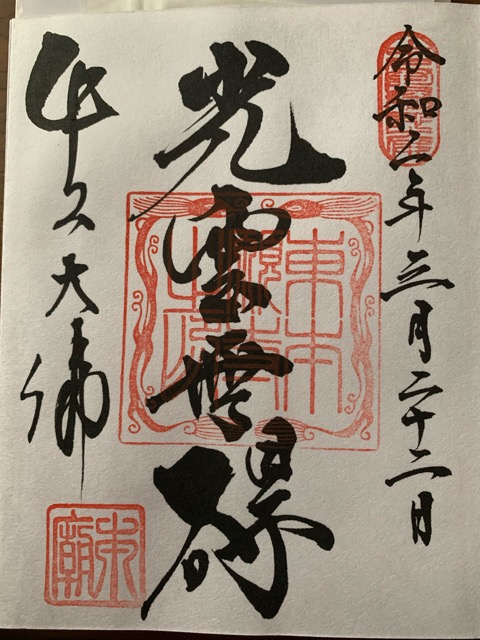 令和二年三月二十二日
光雲無碍
東本
願寺
之印
牛久大佛
本廟